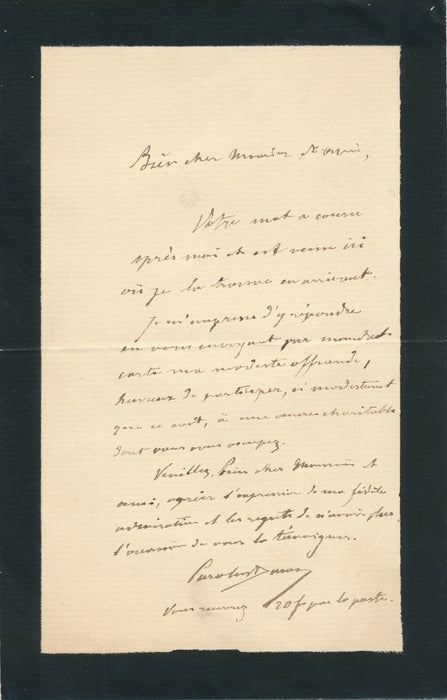 Bien cher Monsieur et ami,
Votre mot a couru
après moi et est venu ici
où je le trouve en arrivant.
Je m'empresse d'y répondre
en vous envoyant par mandat
carte ma modeste offrande,
heureux de participer, si modestement
que ce soit, à une œuvre charitable
dont vous vous occupez.
Veuillez, bien cher Monsieur et
ami, agréer l'expression de ma fidèle
admiration et les regrets de n'avoir plus
l'occasion de vous la témoigner.
Carolus Duran
Vous recevrez 20f par la poste.